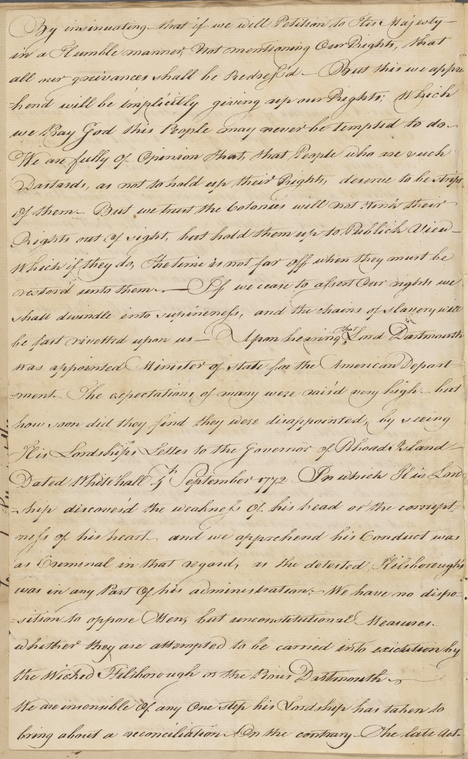 By insinuating that if we will Petition to His Majesty
in a Humble manner, Not mentioning Our Rights, that
all our grievances shall be Redress'd — But this we appre
hend will be implicitly giving up our Rights; Which
we Pray God this People may never be tempted to do.
We are fully of Opinion that, that People who are such
Dastards, as not to hold up their Rights, deserve to be stript
of them — But we trust the Colonies will not Sink their
Rights out of sight, but hold them up to Publick View —
Which if they do, the time is not far off when they must be
restor'd unto them. — If we cease to assert Our rights we
shall dwindle into supineness, and the chains of slavery will
be fast rivetted upon us — Upon hearing that Lord Dartmouth
was appointed Minister of state for the American Depart-
ment. The expectations of many were raised very high — but
how soon did they find they were disappointed, by seeing
His Lordships Letter to the Governor of Rhoad Island
Dated Whitehall September 1772 In which His Lord-
-ship discover'd the weakness of his head or the corrupt-
ness of his heart and we apprehend his Conduct was
as Criminal in that regard, as the detested
was in any Part of his administration; We have no dispo-
-sition to oppose Men, but unconstitutional Measures.
whether they are attempted to be carried into execution by
the Wicked or the Pious Dartmouth
We are insensible of any One step his Lordship has taken to
bring about a reconciliation On the contrary The late Act